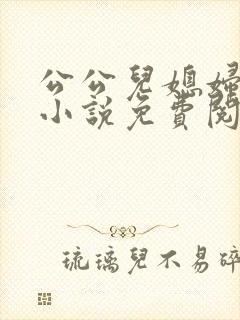 公公兒媳婦
小說免費閱
琉璃兒不易碎